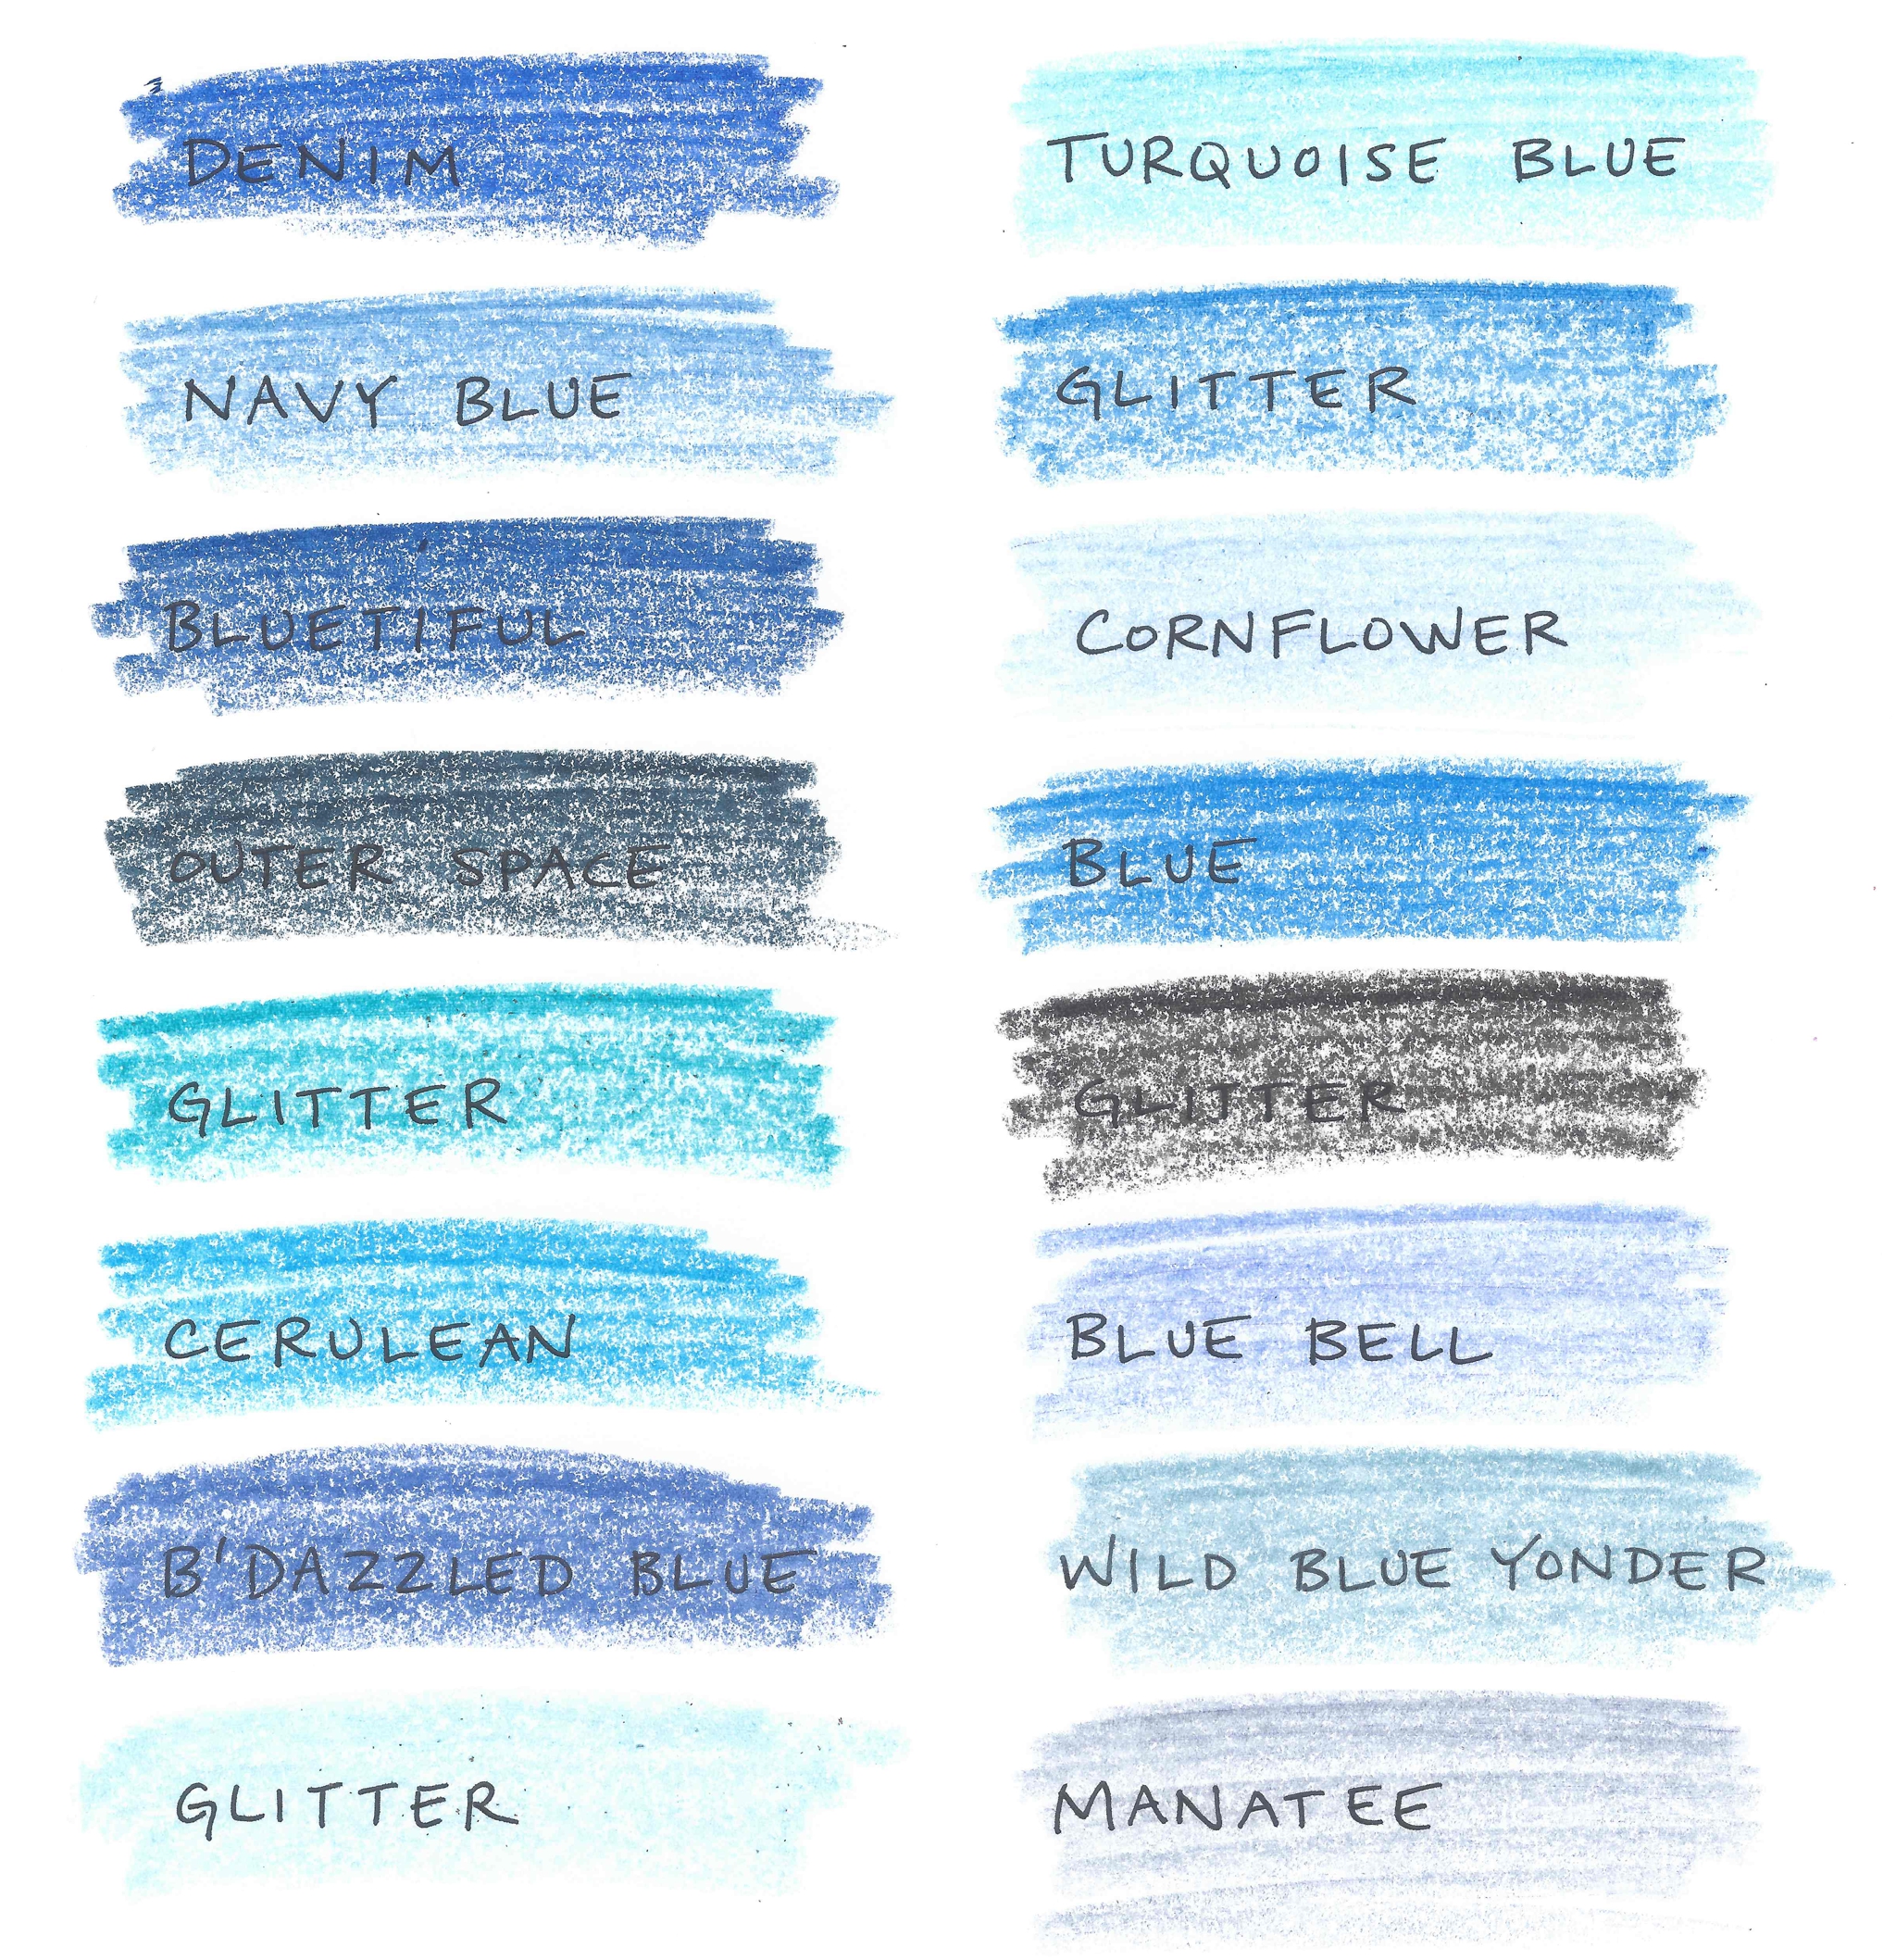 DENIM
NAVY BLUE
BLUETIFUL
OUTER SPACE
GLITTER
CERULEAN
B'DAZZLED BLUE
GLITTER
TURQUOISE BLUE
GLITTER
CORNFLOWER
BLUE
GLITTER
BLUE BELL
WILD BLUE YONDER
MANATEE